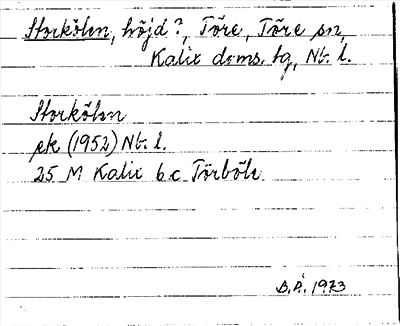 Storkölen, höjd?, Töre, Töre sn,
Kalix doms. tg, Nb. l.
Storkölen
ek (1952) Nb. l.
25 M Kalix 6c Törböle
B.Å. 1973